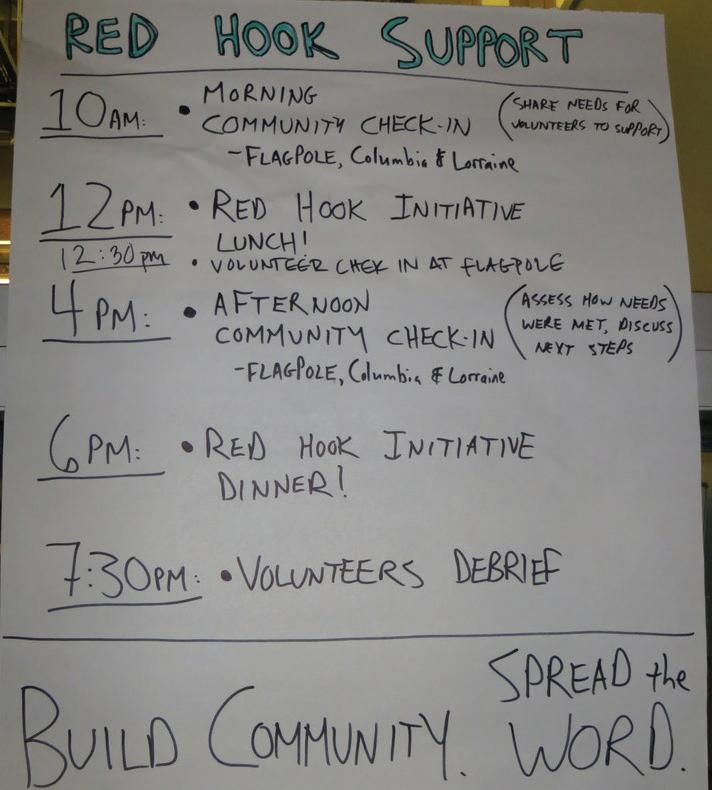 RED HOOK SUPPORT
10AM: • MORNING
COMMUNITY CHECK-IN
(SHARE NEEDS FOR
VOLUNTEERS TO SUPPORT)
-FLAGPOLE, Columbia & Lorraine
12PM: • RED HOOK INITIATIVE
LUNCH!
12:30pm • VOLUNTEER CHEK IN AT FLAGPOLE
4PM: • AFTERNOON
COMMUNITY CHECK-IN
(ASSESS HOW NEEDS
WERE MET, DISCUSS
NEXT STEPS)
-FLAGPOLE, Columbia & Lorraine
6PM: • RED HOOK INITIATIVE
DINNER!
7:30PM: • VOLUNTEERS DEBRIEF
BUILD COMMUNITY. SPREAD the
WORD.